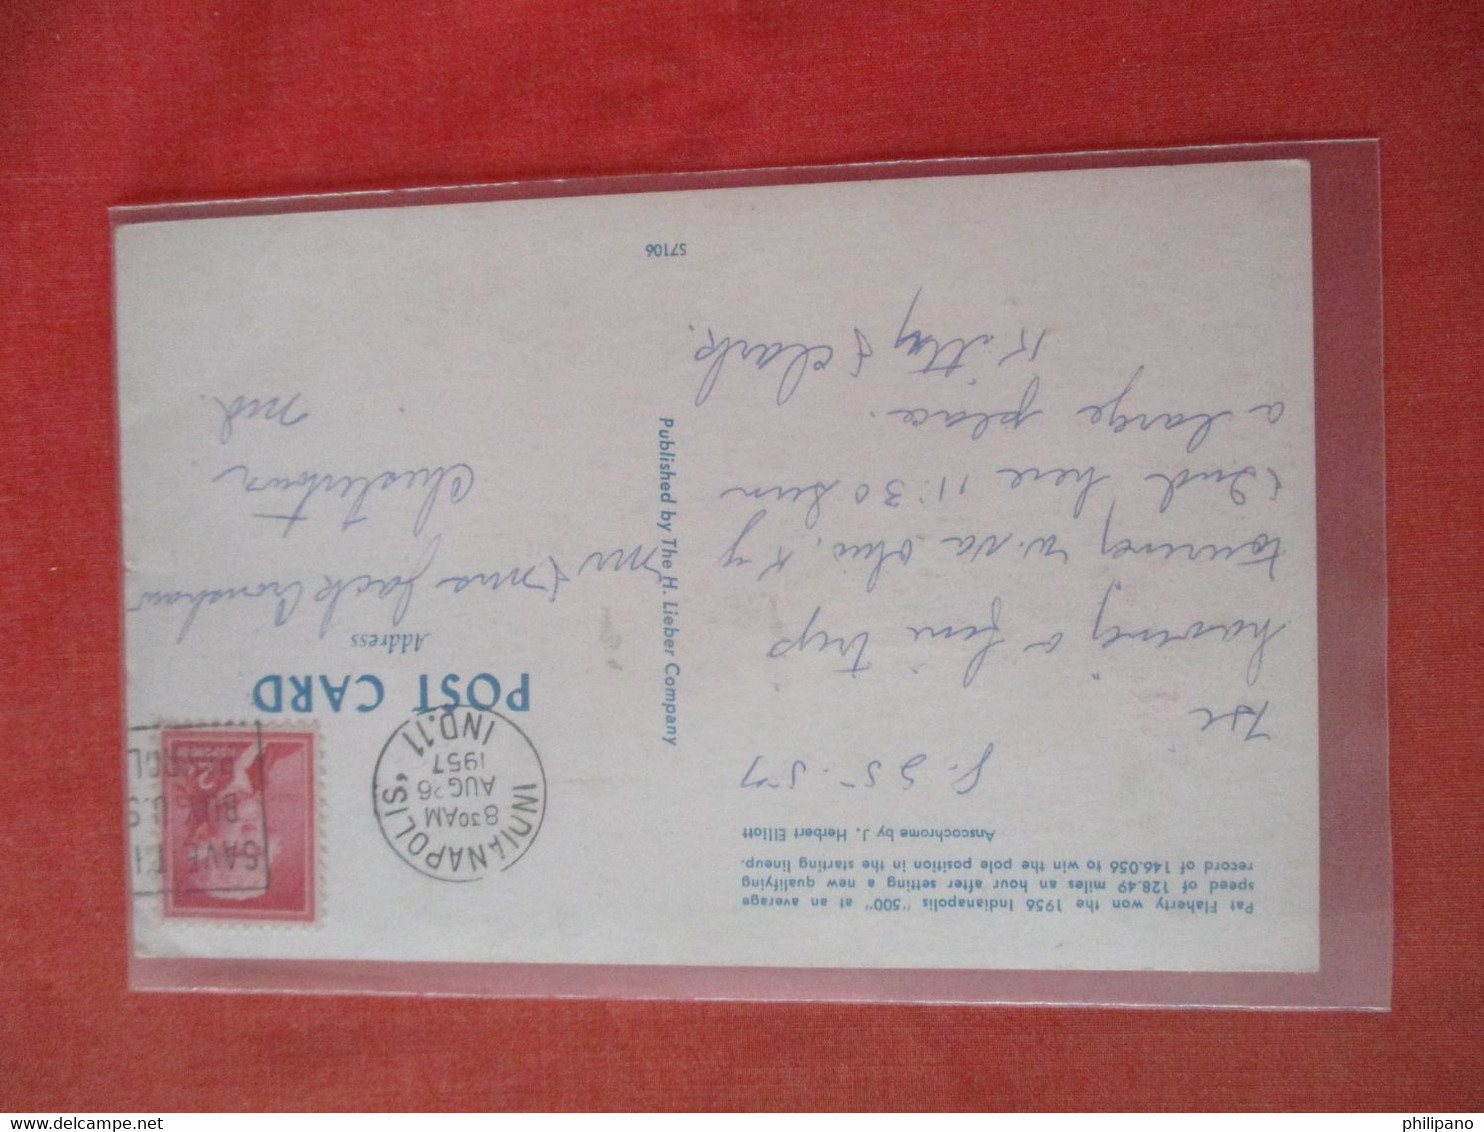 Pat Flaherty won the 1956 Indianapolis "500" at an average
speed of 128.49 miles an hour after setting a new qualifying
record of 146.056 to win the pole position in the starting lineup.
Anscochrome by J. Herbert Elliott
8-25-57
having a fine trip
touring W. Va Ohio, Ky
Ind here 11:30 Sun
a large place.
Kitty & Clark.
S7106
Published by The H. Lieber Company
INDIANAPOLIS,
IND. 11
8 30 AM
AUG 26
1957
SAVE
BUY U.S
2¢
POST CARD
Address
Mr & Mrs Jack Cronshaw
Chestertown
Md.
philipano